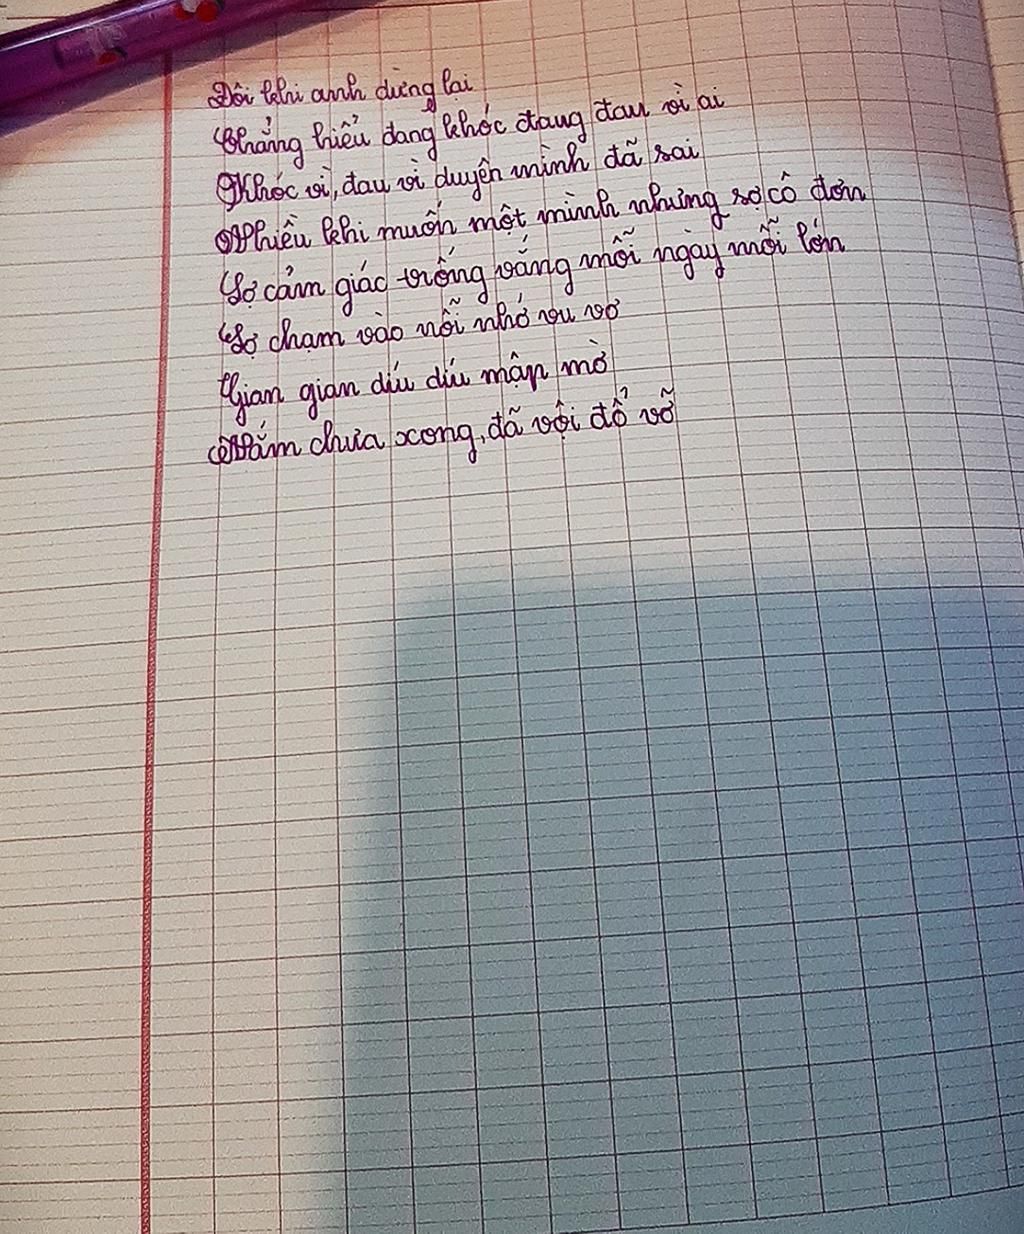 Đôi khi anh dừng lại
Chẳng hiểu đang khóc đang đau vì ai
Khóc vì, đau vì duyên mình đã sai
Nhiều khi muốn một mình nhưng sợ cô đơn
Sợ cảm giác trống vắng mỗi ngày mỗi lớn
Sợ chạm vào nỗi nhớ vu vơ
Gian gian díu díu mập mờ
Nắm chưa xong, đã vội đổ vỡ